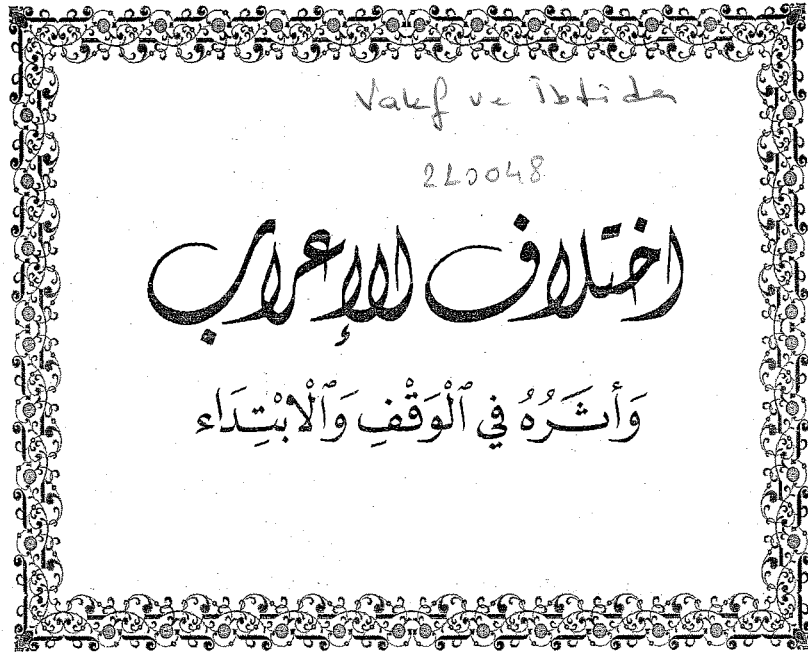 Vakıf ve İbtida
220048
اختلاف الإعراب
وَأَثَرُهُ فِي ٱلْوَقْفِ وَٱلْابْتِدَاء